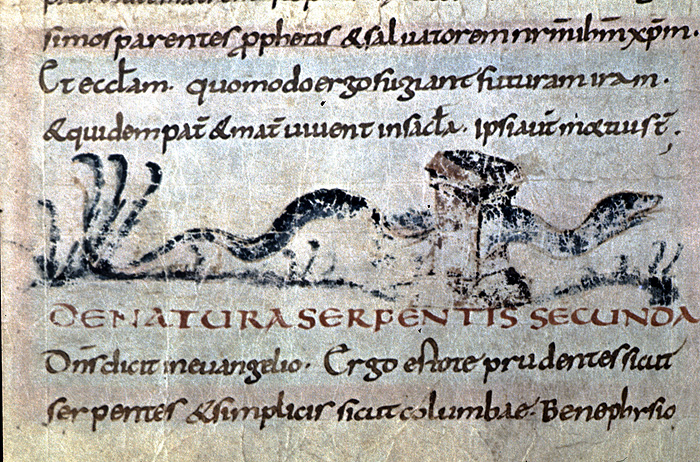 simos parentes p̄pphetas & saluatorem nr̄m ihm̄ xp̄m.
Et eccl̄am. quomodo ergo fugiant futuram iram.
& quidem pat̄ & mat̄ uiuent in sacl̄a. ipsi aut̄ mortui st̄.
DE NATURA SERPENTIS SECUNDA
Dn̄s dicit in euangelio. Ergo estote prudentes sicut
serpentes & simplicis sicut columbae. Bene physio